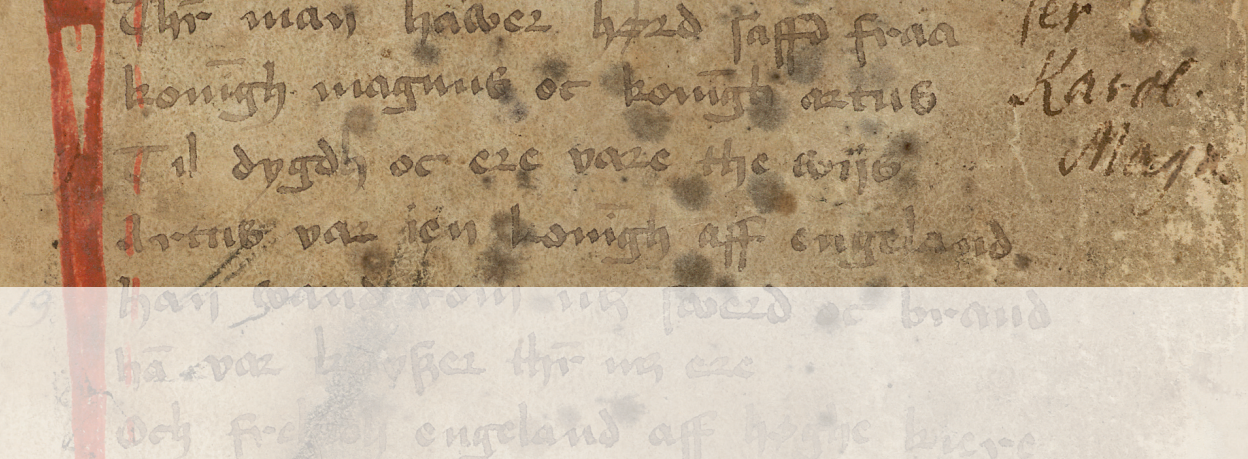 Thr̄ man hawer hørd saffd fraa
koni̅gh magnus oc koni̅gh artus
Til dygdh oc ere vare the wijs
Artus var ien koni̅gh aff engeland
han wand rom m3 swerd oc brand
ha̅ var keyszer thr̄ m3 ere
Och fre engeland aff høghe kiere
Karol.
Magn.